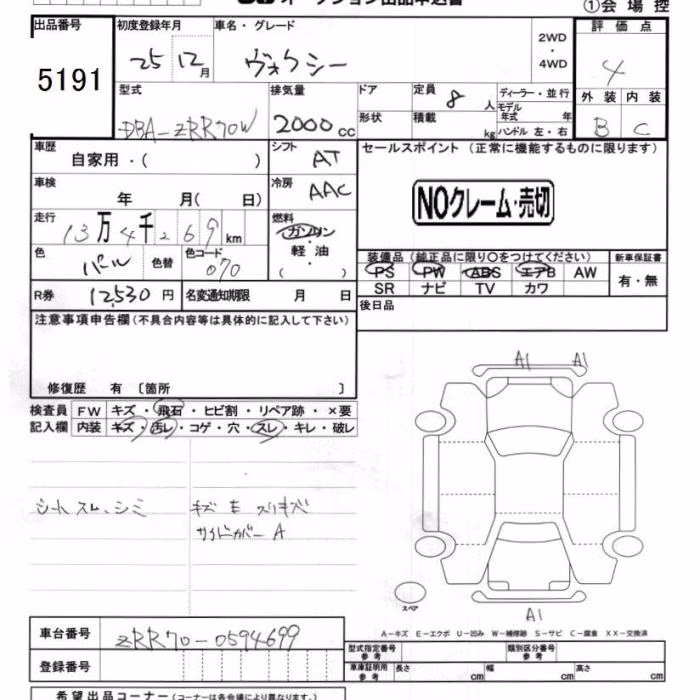 ①会場控
出品番号
5191
初度登録年月
25 12月
車名・グレード
ヴォクシー
2WD
・
4WD
評価点
4
外装 内装
B C
型式
DBA-ZRR70W
排気量
2000cc
ドア
形状
定員
8人
積載
kg
ディーラー・並行
モデル年式 年
ハンドル 左・右
車歴
自家用・( )
シフト
AT
車検
年 月( 日)
冷房
AAC
走行
13万4千269km
燃料
ガソリン
軽油
色
パール
色替
色コード
070
R券
12,530円
名変通知期限 月 日
セールスポイント(正常に機能するものに限ります)
NOクレーム・売切
装備品(純正品に限り○をつけてください)
PS PW ABS エアB AW
SR ナビ TV カワ
新車保証書
有・無
後日品
注意事項申告欄(不具合内容等は具体的に記入して下さい)
修復歴 有〔箇所 〕
検査員記入欄
FW キズ・飛石・ヒビ割・リペア跡・×要
内装 キズ・汚レ・コゲ・穴・スレ・キレ・破レ
シートスレ、シミ
キズ E スリキズ
サイドカバー A
A1 A1
A1
スペア
A-キズ E-エクボ U-凹み W-補修跡 S-サビ C-腐食 XX-交換済
車台番号
ZRR70-0594699
登録番号
型式指定番号
参考
類別区分番号
参考
車庫証明用
参考
長さ cm 幅 cm 高さ cm
希望出品コーナー(コーナーは各会場により異なります。)